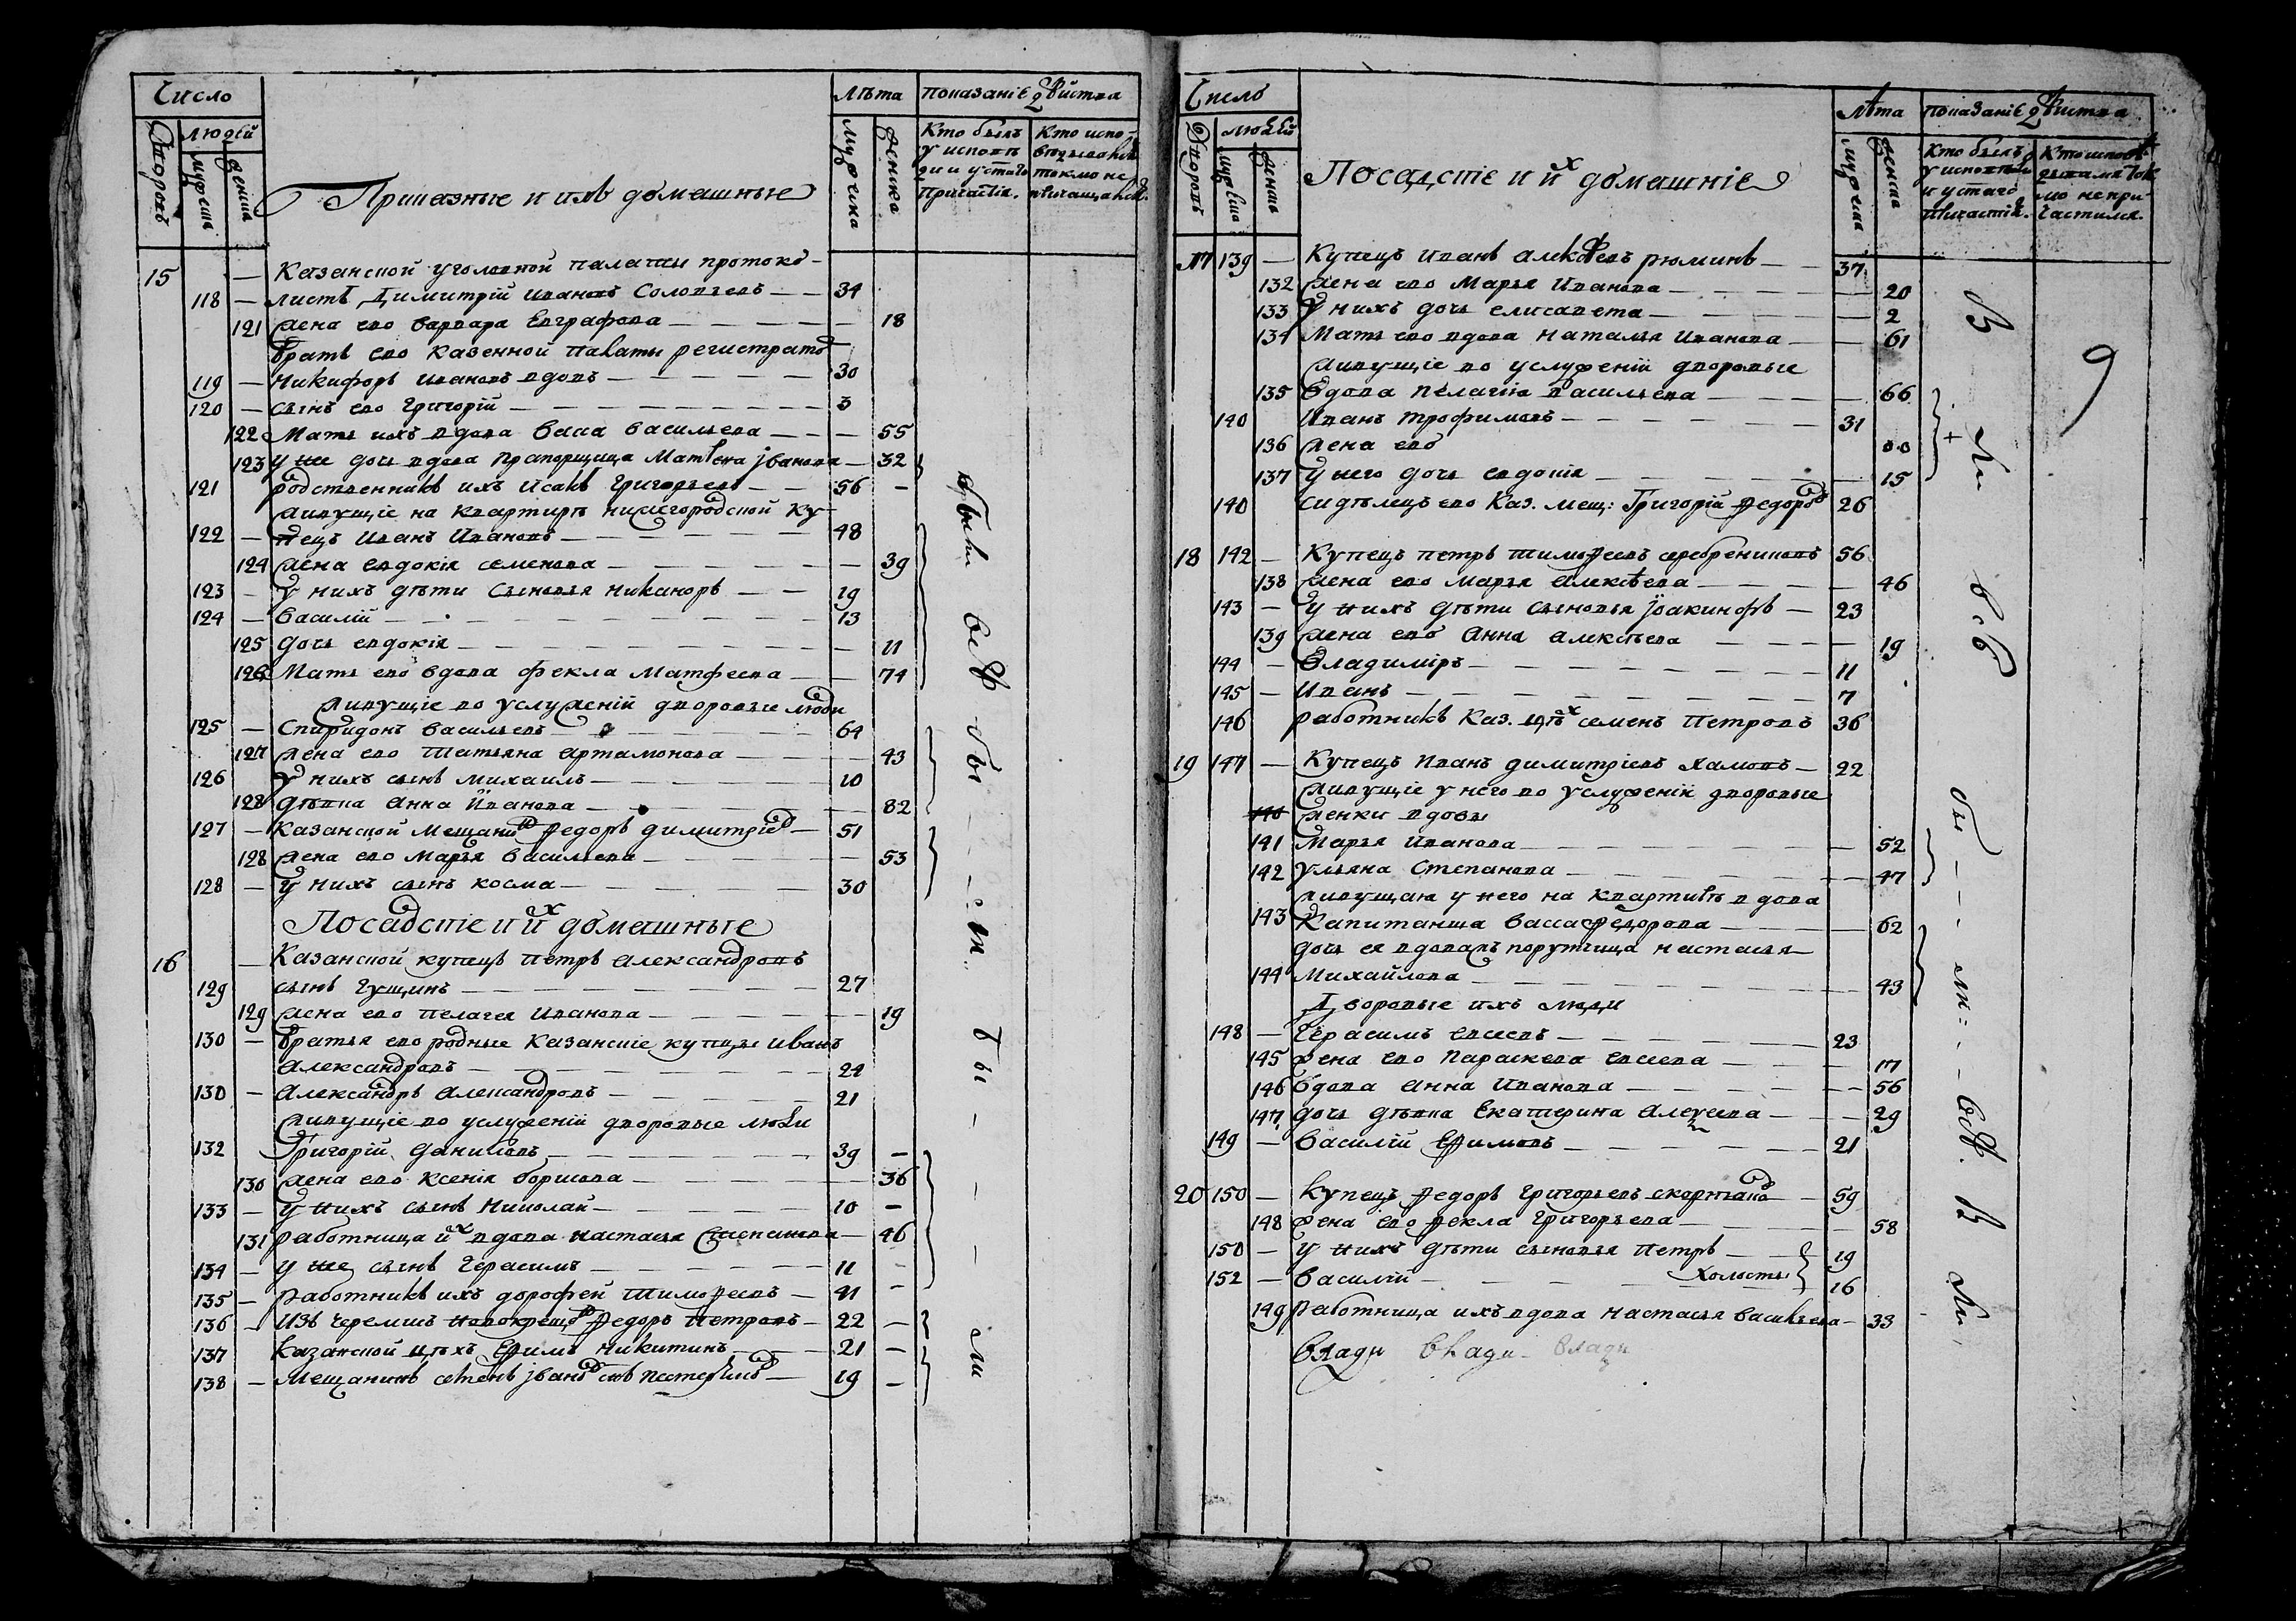 Число
Лѣта
Показаніе действа
Дворовъ
людей
мужеска
женска
Приказные и ихъ домашные
Мужеска
Женска
Кто былъ у исповѣди и у стаго причастія.
Кто исповѣдывался токмо не причащался.
15 — Казанской уголовной палаты протоко-
118 — листъ Димитрій Ивановъ Соловьевъ — 34
121 жена ево варвара Евграфова — 18
братъ ево казенной палаты регистраторъ
119 — Никифоръ Ивановъ вдовъ — 30
120 — сынъ ево Григорій — 3
122 Мать ихъ вдова васса васильева — 55
123 у нее дочь вдова прапорщица Матвена Іванова — 32
121 родственникъ ихъ Исакъ Григорьевъ — 56 —
живущіе на квартирѣ нижегородской ку-
122 — пецъ Иванъ Ивановъ — 48
124 жена евдокія семенова — 39
123 — у нихъ дѣти сыновья никаноръ — 19
124 — василій — 13
125 дочь евдокія — 11
126 Мать ево вдова фекла Матфеева — 74
живущіе во услуженіи дворовые люди
125 — Спиридонъ васильевъ — 64
127 жена ево татьяна артамонова — 43
126 у нихъ сынъ михаилъ — 10
128 дѣвка анна Иванова — 82
127 — казанской мещанинъ Федоръ димитріевъ — 51
128 жена ево марья васильева — 53
128 — у нихъ сынъ косма — 30
Посадскіе и ихъ домашные
16 — Казанской купецъ петръ александровъ
129 сынъ Гущинъ — 27
129 жена ево пелагея Иванова — 19
130 — братья ево родные казанскіе купцы иванъ
александровъ — 24
130 — александръ александровъ — 21
живущіе во услуженіи дворовые люди
132 Григорій даниловъ — 39 —
130 жена ево ксенія борисова — 36
133 — у нихъ сынъ николай — 10 —
131 работница ихъ вдова настасья степанова — 46
134 — у нее сынъ Герасимъ — 11 —
135 — работникъ ихъ дорофей тимофеевъ — 41 —
136 — Изъ черемисъ новокрещенъ Федоръ петровъ — 22 —
137 казанской цѣхъ Ефимъ никитинъ — 21 —
138 — Мещанинъ семенъ івановъ сынъ — 19 —
были всѣ бы ли
Число
Лѣта
показаніе действа
Дворовъ
людей
мужеска
женска
Посадскіе и ихъ домашніе
мужеска
женска
Кто былъ у исповѣди и у стаго причастія.
Кто исповѣдывался токмо не причастился.
17 139 — Купецъ иванъ алексѣевъ рюминъ — 37
132 жена ево Марья Иванова — 20
133 у нихъ дочь елисавета — 2
134 Мать ево вдова наталья Иванова — 61
живущіе во услуженіи дворовые
135 вдова пелагія васильева — 66
140 Иванъ трофимовъ — 31
136 жена ево 00
137 у него дочь евдокія — 15
140 сидѣлецъ ево Каз. мещ: Григорій Федоровъ 26
9
18 142 — Купецъ петръ тимофеевъ серебрениковъ 56
138 жена ево марья алексѣева — 46
143 — у нихъ дѣти сыновья іоакинфъ — 23
139 жена ево анна алексѣева — 19
144 — владиміръ — 11
145 — Иванъ — 7
146 работникъ каз. цѣхъ семенъ петровъ 36
19 147 — Купецъ Иванъ димитріевъ хамовъ — 22
живущіе у него во услуженіи дворовые
140 женки вдовы
141 Марья Иванова — 52
142 ульяна степанова — 47
живущая у него на квартирѣ вдова
143 капитанша васса Федорова — 62
дочь ея вдова порутчица настасья
144 михайлова — 43
Дворовые ихъ люди
148 — Герасимъ евсеевъ — 23
145 жена ево параскева евсеева — 17
146 вдова анна Иванова — 56
147 дочь дѣвка екатерина алексеева — 29
149 — василій Ефимовъ — 21
20 150 — купецъ Федоръ Григорьевъ — 59
148 жена ево Фекла Григорьева — 58
150 — у нихъ дѣти сыновья петръ — 19
152 — василій — холосты 16
149 работница ихъ вдова настасья васильева — 33
влади влади влади